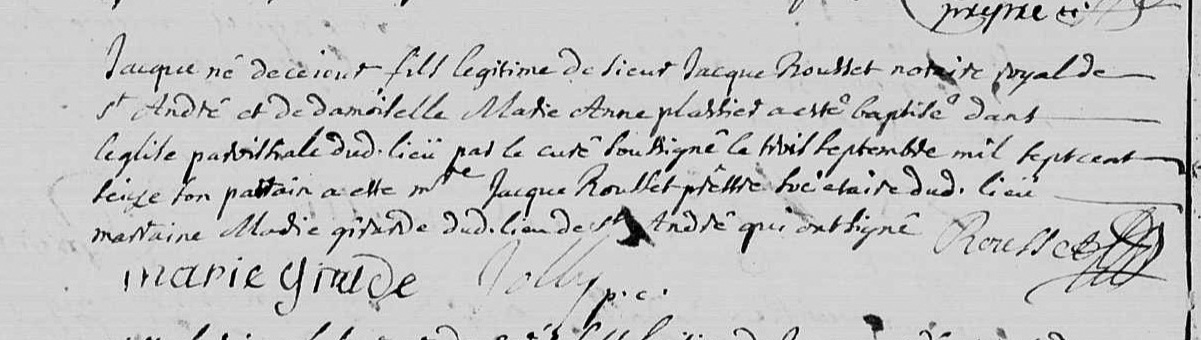 Jacque né de ce jour fils legitime de sieur Jacque Rousset notaire royal de
st André et de damoiselle Marie Anne plassier a esté baptisé dans
leglise paroissiale dud. lieu par le curé soussigné le trois septembre mil sept cent
seize son parrain a este mre Jacque Rousset prêstre societaire dud. lieu
marraine Marie girarde dud. lieu de st André qui ont signé Rousset
marie Girarde Jolly p. c.